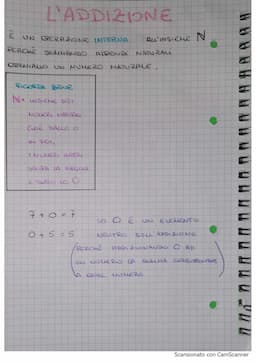 L'ADDIZIONE
È UN OPERAZIONE INTERNA ALL'INSIEME N
PERCHÈ SOMMANDO NUMERI NATURALI
OTTENIAMO UN NUMERO NATURALE.
RICORDA BENE
N = INSIEME DEI
NUMERI NATURALI
CIOÈ DALLO 0
IN POI,
I NUMERI INTERI
SENZA LA VIRGOLA
E DALLO 0
7 + 0 = 7
0 + 5 = 5
LO 0 È UN ELEMENTO
NEUTRO DELL'ADDIZIONE
(PERCHÈ ADDIZIONANDO 0 AD
UN NUMERO LA SOMMA
A QUEL NUMERO)
Scansionato con CamScanner